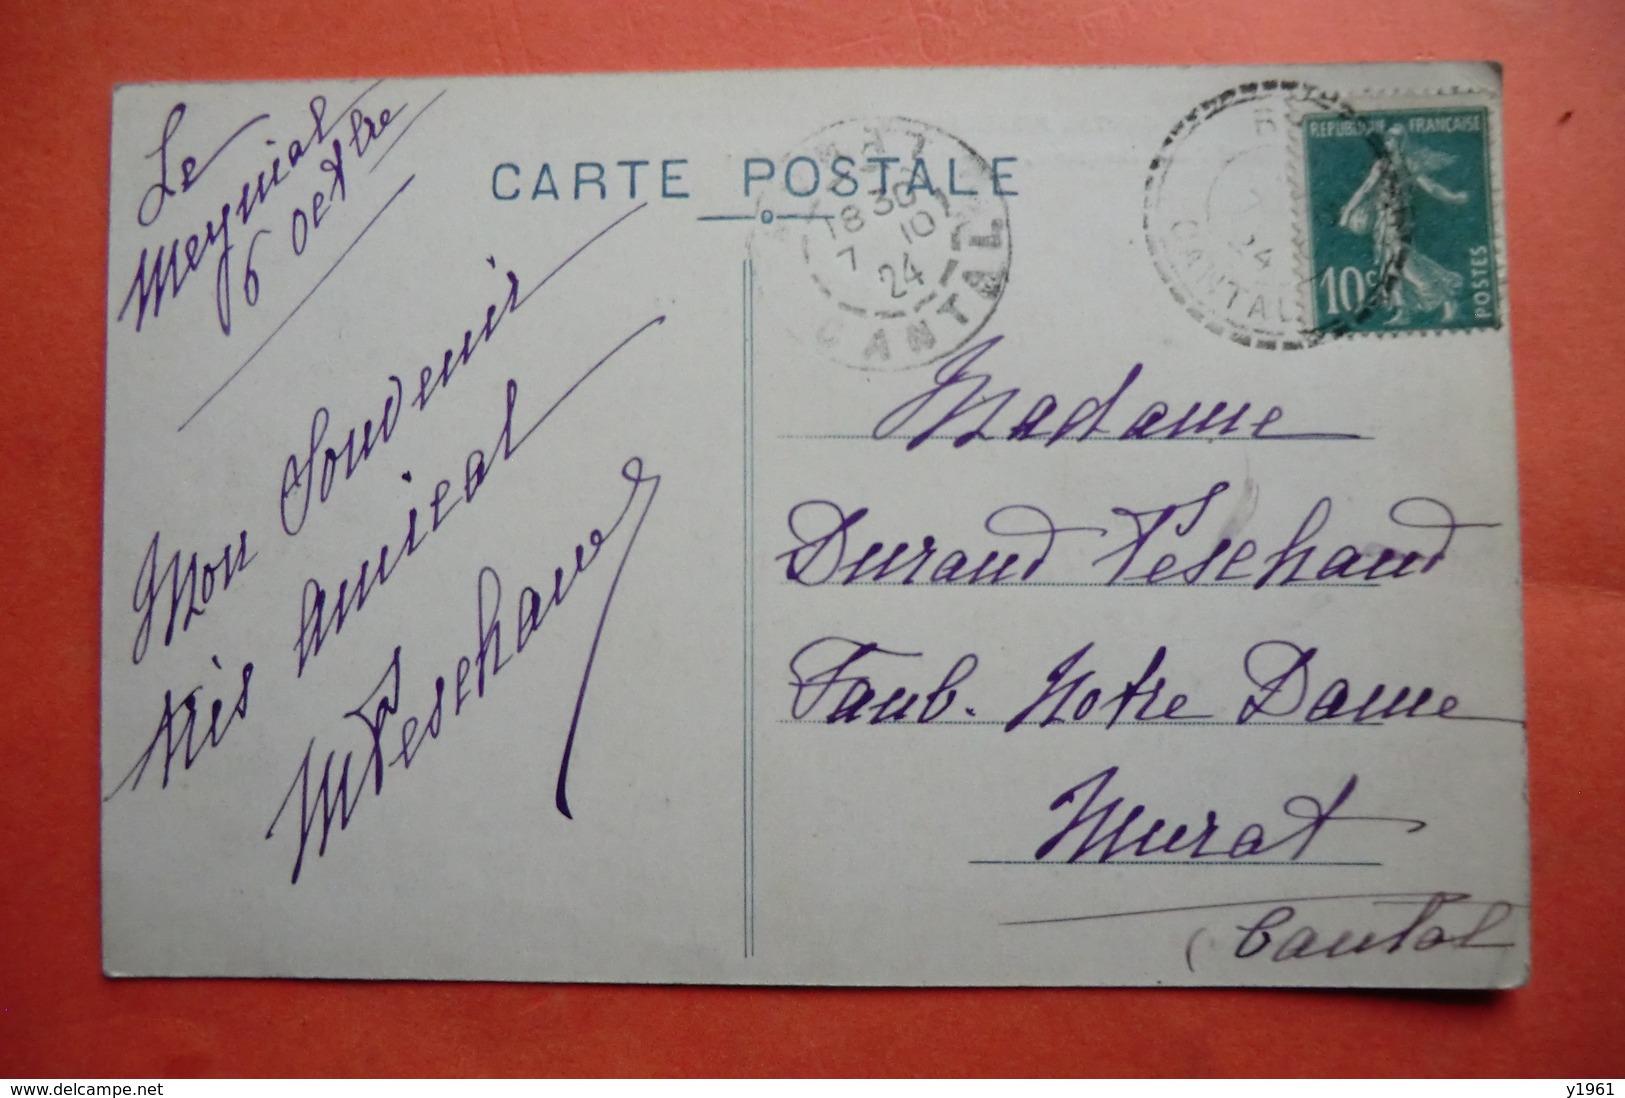 Le
Meynial
6 Octbre
CARTE POSTALE
18 30
7 10
24
CANTAL
24
CANTAL
REPUBLIQUE FRANÇAISE
10c
POSTES
Mon Souvenir
très amical
M Teschaud
Madame
Durand Teschaud
Faub. Notre Dame
Murat
(Cantal
www.delcampe.net
y1961